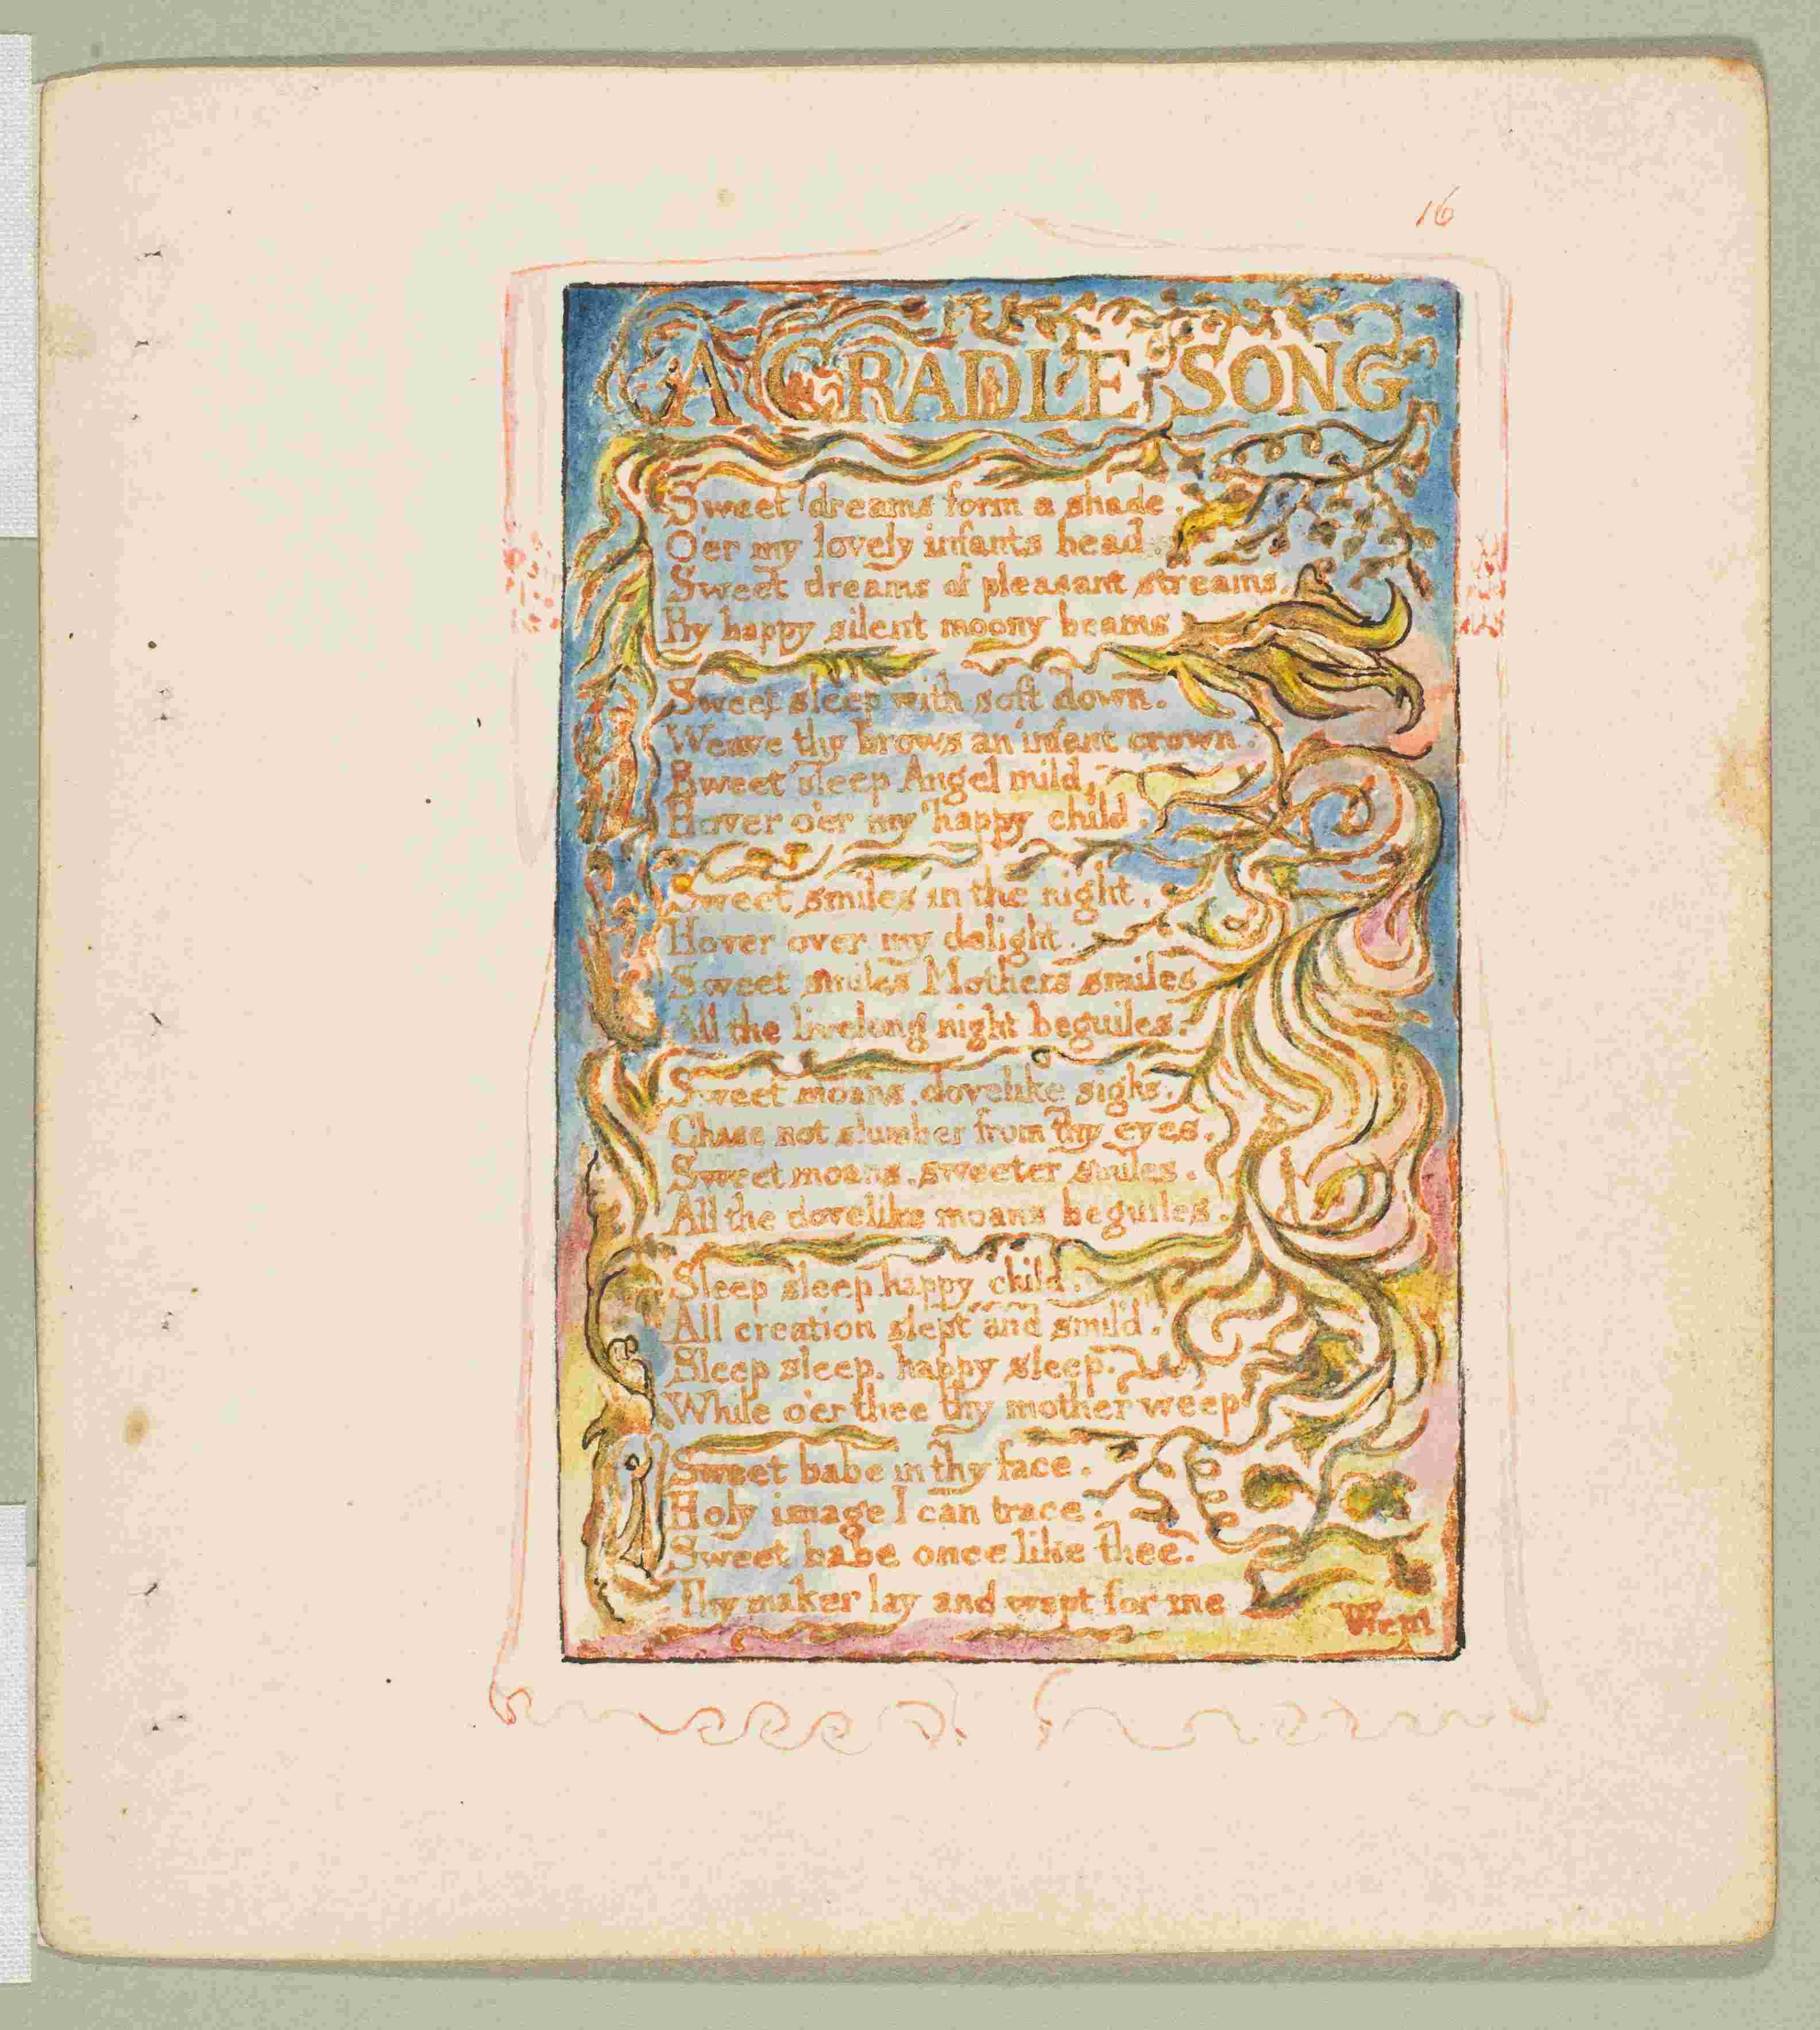 16
A CRADLE SONG
Sweet dreams form a shade,
O'er my lovely infants head.
Sweet dreams of pleasant streams,
By happy silent moony beams
Sweet sleep with soft down.
Weave thy brows an infant crown.
Sweet sleep Angel mild,
Hover o'er my happy child.
Sweet smiles in the night,
Hover over my delight.
Sweet smiles Mothers smiles
All the livelong night beguiles.
Sweet moans, dovelike sighs,
Chase not slumber from thy eyes.
Sweet moans, sweeter smiles.
All the dovelike moans beguiles.
Sleep sleep happy child.
All creation slept and smil'd.
Sleep sleep, happy sleep,
While o'er thee thy mother weep
Sweet babe in thy face,
Holy image I can trace.
Sweet babe once like thee.
Thy maker lay and wept for me
Wept